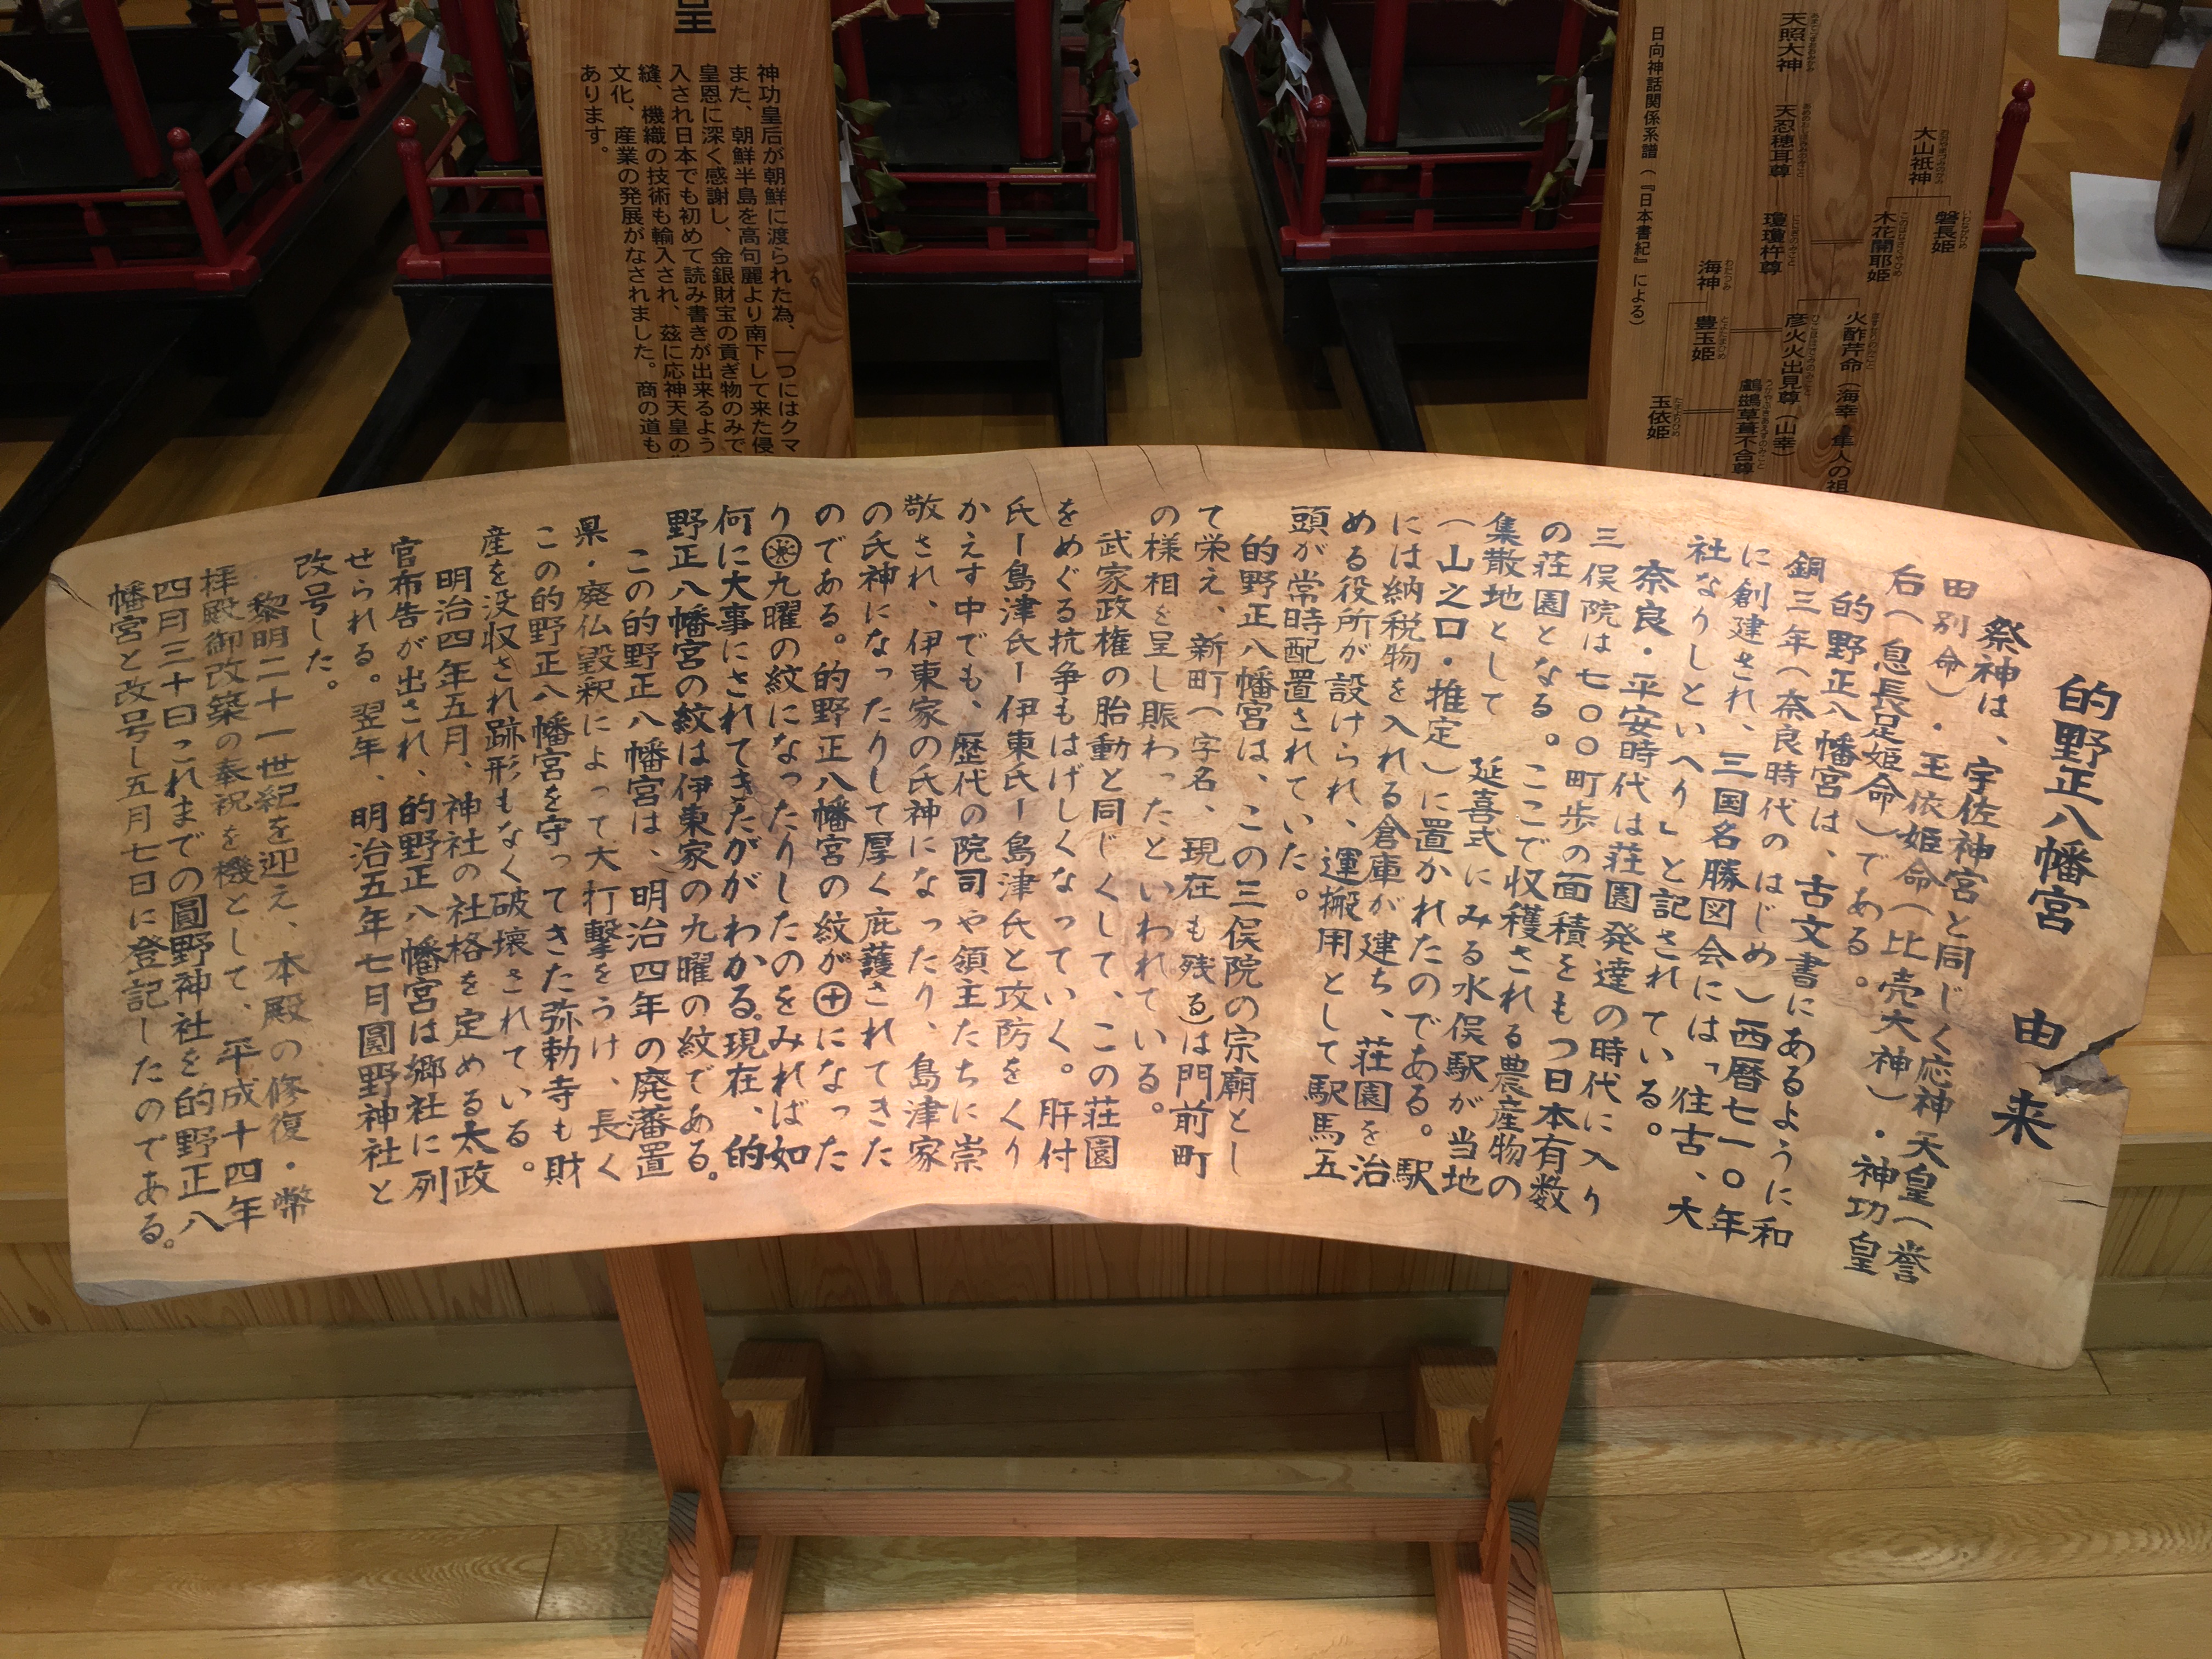 的野正八幡宮　由来
祭神は、宇佐神宮と同じく応神天皇（誉
田別命）・玉依姫命（比売大神）・神功皇
后（息長足姫命）である。
的野正八幡宮は、古文書にあるように和
銅三年（奈良時代のはじめ）西暦七一〇年
に創建され、三国名勝図会には「往古、大
社なりしといへり」と記されている。
奈良・平安時代は荘園発達の時代に入り
三俣院は七〇〇町歩の面積をもつ日本有数
の荘園となる。ここで収穫される農産物の
集散地として　延喜式にみる水俣駅が当地
（山之口・推定）に置かれたのである。駅
には納税物を入れる倉庫が建ち、荘園を治
める役所が設けられ、運搬用として駅馬五
頭が常時配置されていた。
的野正八幡宮は、この三俣院の宗廟とし
て栄え、新町（字名、現在も残る）は門前町
の様相を呈し賑わったといわれている。
武家政権の胎動と同じくして、この荘園
をめぐる抗争もはげしくなっていく。肝付
氏ー島津氏ー伊東氏ー島津氏と攻防をくり
かえす中でも、歴代の院司や領主たちに崇
敬され、伊東家の氏神になったり、島津家
の氏神になったりして厚く庇護されてきた
のである。的野正八幡宮の紋が㊉になった
り九曜の紋になったりしたのをみれば如
何に大事にされてきたがわかる。現在、的
野正八幡宮の紋は伊東家の九曜の紋である。
この的野正八幡宮は、明治四年の廃藩置
県・廃仏毀釈によって大打撃をうけ、長く
この的野正八幡宮を守ってきた弥勅寺も財
産を没収され跡形もなく破壊されている。
明治四年五月、神社の社格を定める太政
官布告が出され、的野正八幡宮は郷社に列
せられる。翌年、明治五年七月圓野神社と
改号した。
黎明二十一世紀を迎え、本殿の修復・幣
拝殿御改築の奉祝を機として、平成十四年
四月三十日これまでの圓野神社を的野正八
幡宮と改号し五月七日に登記したのである。
皇
神功皇后が朝鮮に渡られた為、一つにはクマ
また、朝鮮半島を高句麗より南下して来た侵
皇恩に深く感謝し、金銀財宝の貢ぎ物のみで
入され日本でも初めて読み書きが出来るよう
縫、機織の技術も輸入され、茲に応神天皇の
文化、産業の発展がなされました。商の道も
あります。
大山祇神
磐長姫
木花開耶姫
天照大神
天忍穂耳尊
瓊瓊杵尊
火酢芹命（海幸　隼人の祖
彦火火出見尊（山幸）
鸕鷀草葺不合尊
海神
豊玉姫
玉依姫
日向神話関係系譜（『日本書紀』による）